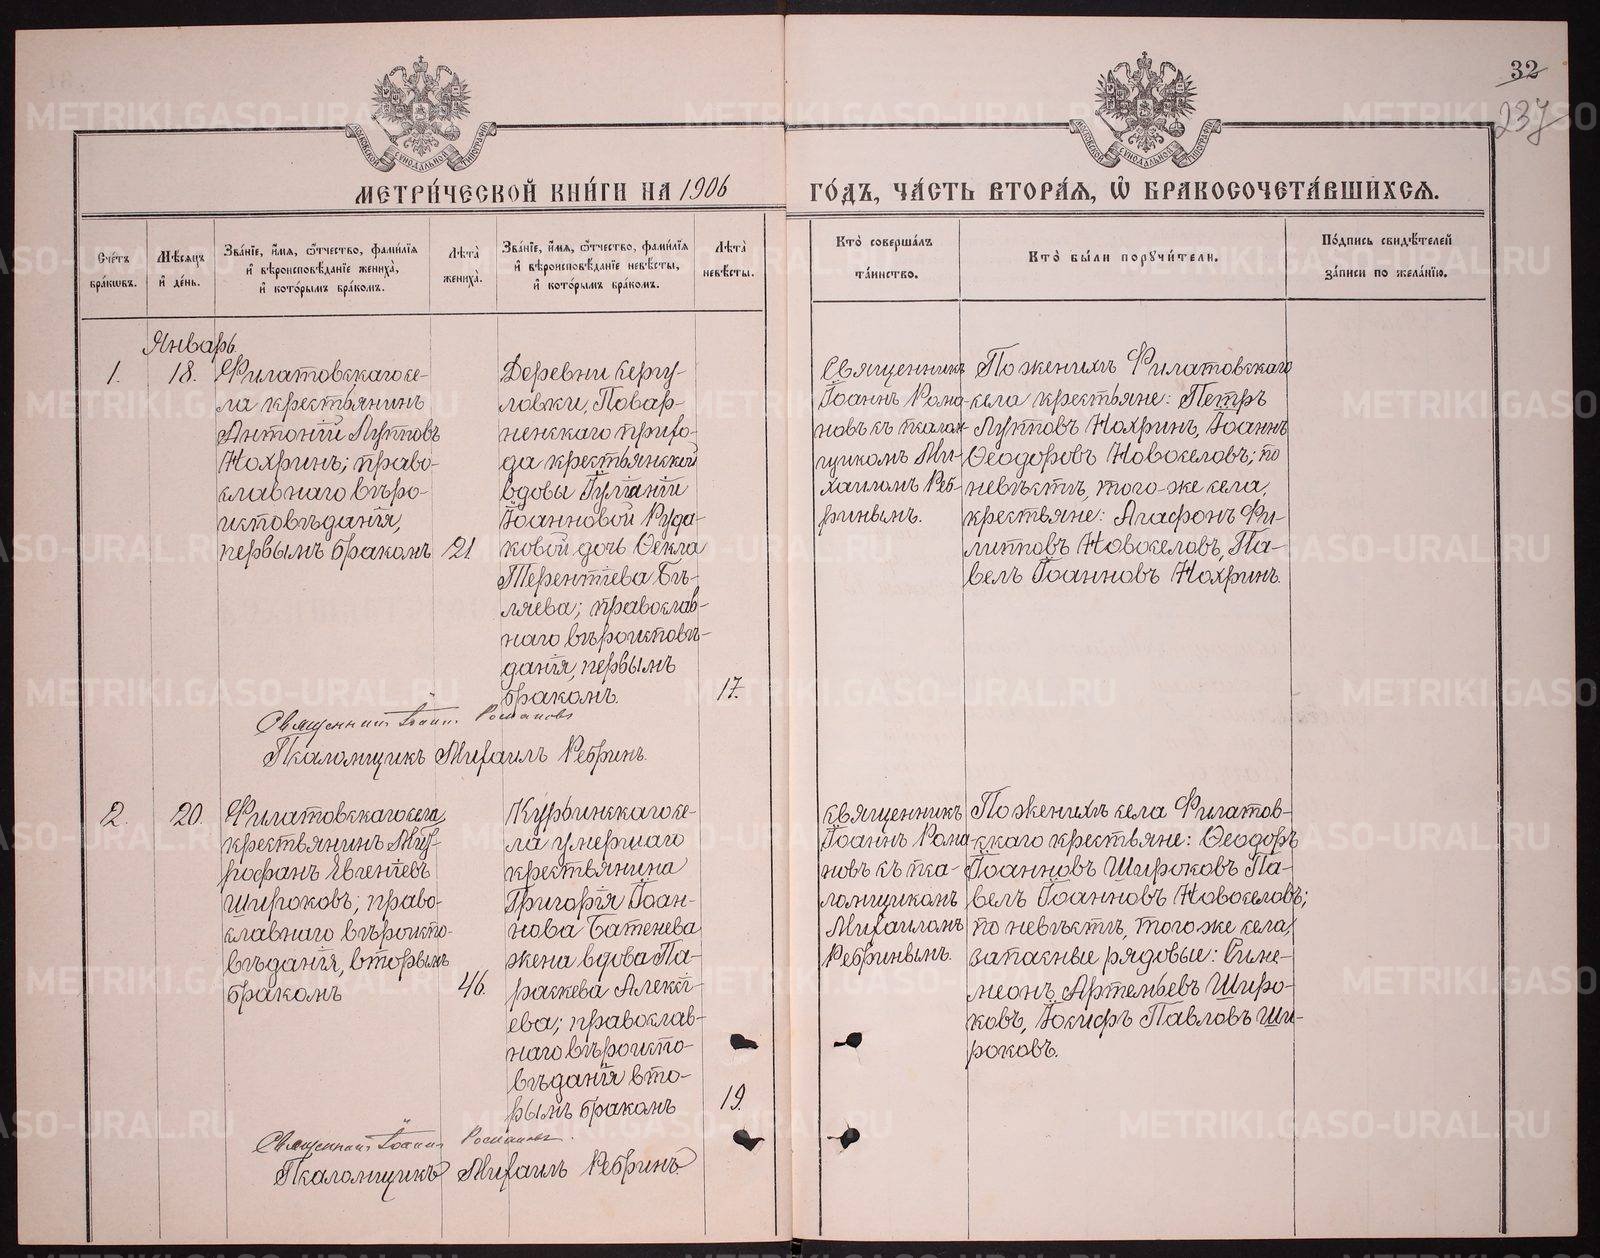 32
237
МОСКОВСКОЙ СѴНОДАЛЬНОЙ ТИПОГРАФІИ
МОСКОВСКОЙ СѴНОДАЛЬНОЙ ТИПОГРАФІИ
МЕТРИ́ЧЕСКОЙ КНИ́ГИ НА 1906 ГО́ДЪ, ЧА́СТЬ ВТОРА́Ѧ, Ѽ БРАКОСОЧЕТА́ВШИХСѦ.
Сче́тъ бра́кѡвъ.
Мѣ́сѧцъ и҆ де́нь.
Зва́нїе, и҆́мѧ, ѻ҆́тчество, фами́лїѧ и҆ вѣроисповѣ́данїе жениха̀, и҆ кото́рымъ бра́комъ.
Лѣ́та жениха̀.
Зва́нїе, и҆́мѧ, ѻ҆́тчество, фами́лїѧ и҆ вѣроисповѣ́данїе невѣ́сты, и҆ кото́рымъ бра́комъ.
Лѣ́та невѣ́сты.
Кто̀ соверша́лъ та́инство.
Кто̀ бы́ли порꙋчи́тели.
По́дпись свидѣ́телей за́писи по жела́нїю.
Январь.
1.
18.
Филатовскаго се-
ла крестьянинъ
Антоній Лупповъ
Нохринъ; право-
славнаго вѣро-
исповѣданія,
первымъ бракомъ
21.
Деревни Сергу-
ловки, Повар-
ненскаго прихо-
да крестьянской
вдовы Іуліаніи
Іоанновой Руда-
ковой дочь Ѳекла
Терентіева Бѣ-
ляева; православ-
наго вѣроисповѣ-
данія, первымъ
бракомъ.
17.
Священникъ
Іоаннъ Рома-
новъ съ псалом-
щикомъ Ми-
хаиломъ Реб-
ринымъ.
По женихѣ Филатовскаго
села крестьяне: Петръ
Лупповъ Нохринъ, Іоаннъ
Ѳеодоровъ Новоселовъ; по
невѣстѣ, того-же села,
крестьяне: Агафонъ Фи-
липповъ Новоселовъ, Па-
велъ Іоанновъ Нохринъ.
Священникъ Іоаннъ Романовъ
Псаломщикъ Михаилъ Ребринъ.
2.
20.
Филатовскаго села
крестьянинъ Мит-
рофанъ Евгеніевъ
Широковъ; право-
славнаго вѣроиспо-
вѣданія, вторымъ
бракомъ
46.
Курьинскаго се-
ла умершаго
крестьянина
Григорія Іоан-
нова Батенева
жена вдова Па-
раскева Алексі-
ева; православ-
наго вѣроиспо-
вѣданія вто-
рымъ бракомъ
19.
Священникъ
Іоаннъ Рома-
новъ съ пса-
ломщикомъ
Михаиломъ
Ребринымъ.
По женихѣ села Филатов-
скаго крестьяне: Ѳеодоръ
Іоанновъ Широковъ Па-
велъ Іоанновъ Новоселовъ;
по невѣстѣ, того же села,
запасные рядовые: Симе-
меонъ Артемьевъ Широ-
ковъ, Іосифъ Павловъ Ши-
роковъ.
Священникъ Іоаннъ Романовъ.
Псаломщикъ Михаилъ Ребринъ
METRIKI.GASO-URAL.RU